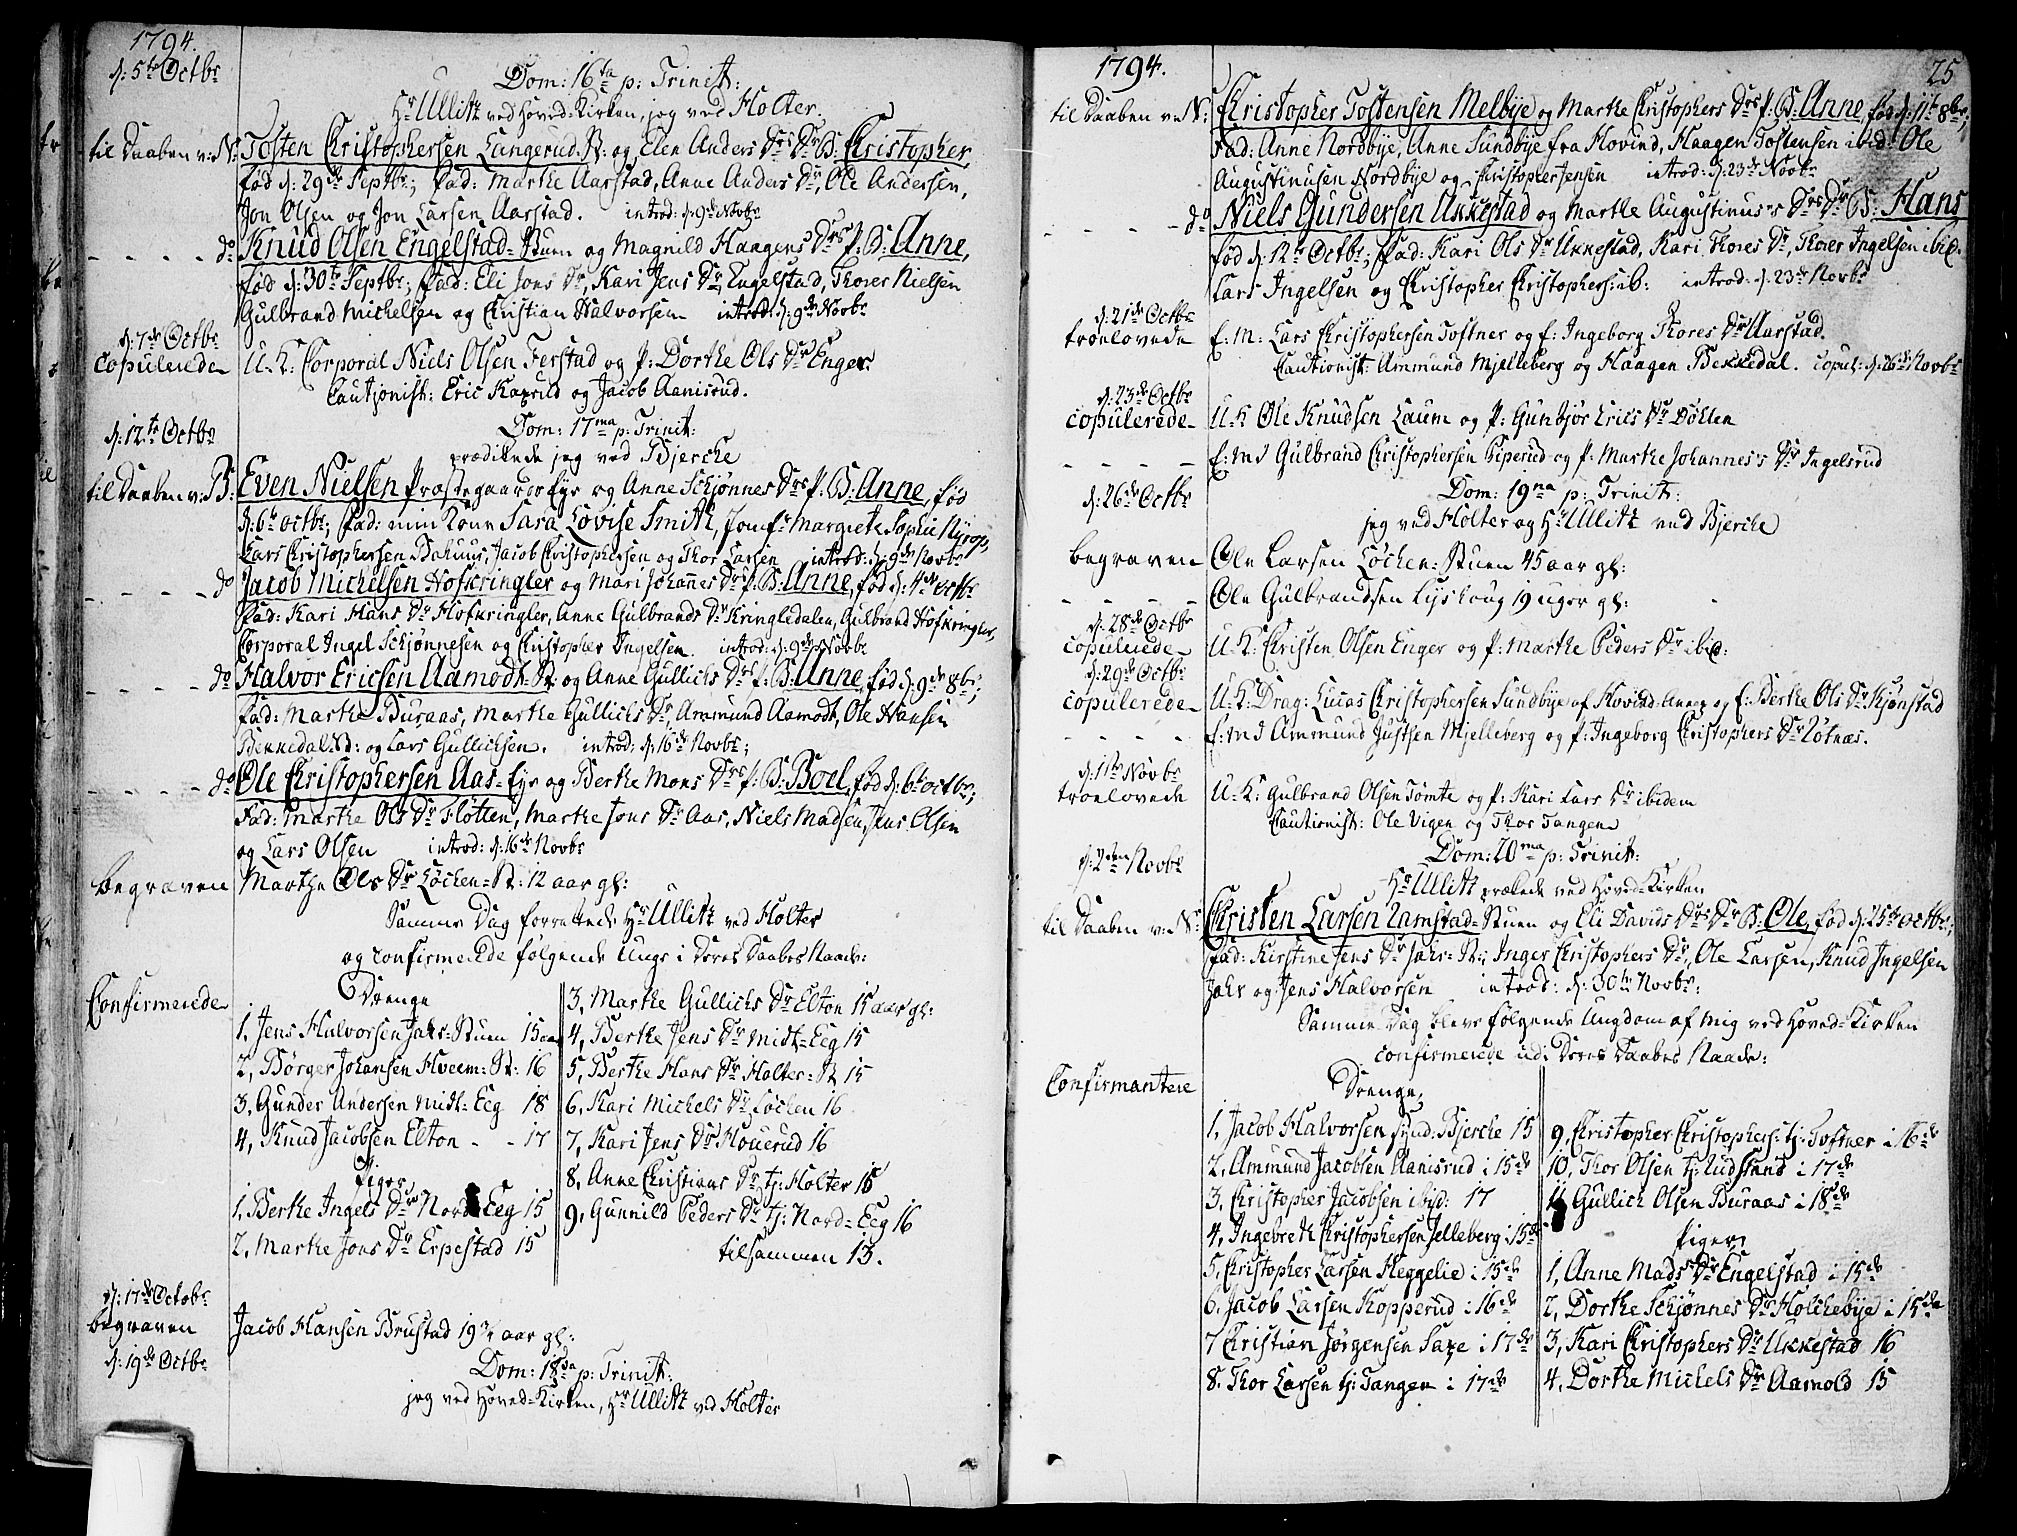 1794.
d: 5te Octbr
Dom: 16ta p: Trinit:
Hr Ullitz ved Hoved-Kirken, jeg ved Holter.
til Daaben v: N: Tosten Christophersen Langerud St: og Elen Anders Drs Dr B: Christopher,
fød d: 29de Septbr; fad: Marthe Aarstad, Anne Anders Dr, Ole Andersen,
Jon Olsen og Jon Larsen Aarstad. introd: d: 9de Novbr
do Knud Olsen Engelstad-Stuen og Magnild Haagens Drs P: B: Anne,
fød d: 30te Septbr; fad: Eli Jons Dr, Kari Jens Dr Engelstad, Thorer Nielsen
Gulbrand Michelsen og Christian Halvorsen introd: d: 9de Novbr
d: 7de Octbr
copulerede U: K: Corporal Niels Olsen Ferstad og P: Dorthe Ols Dr Enger.
Cautionist: Eric Kaxrud og Jacob Aanisrud.
d: 12te Octbr
Dom: 17ma p: Trinit:
prædikede jeg ved Bjerche
til Daaben v: B: Even Nielsen Præstegaards Eje og Anne Schjønnes Drs P: B: Anne, fød
d: 6te octbr; fad: min Kone Sara Lovise Smith, Jomfr Margrete Sophie Nyrop,
Lars Christophersen Bahuus, Jacob Christophersen og Thor Larsen introd: d: 9de Novbr
do Jacob Michelsen Hofkringler og Mari Johannes Dr P: B: Anne, fød d: 4de octbr
fad: Kari Hans Dr Hofkringler, Anne Gulbrands Dr Kringledalen, Gulbrand Hofkringler,
Corporal Ingel Schjønnesen og Christopher Ingelsen. introd: d: 9de Novbr
do Halvor Ericsen Aamodt-St og Anne Gullichs Drs P: B: Anne, fød d: 9de 8br;
fad: Marthe Buraas, Marthe Gullichs Dr, Ammund Aamodt, Ole Hansen
Bekkedal St: og Lars Gullichsen. introd: d: 16de Novbr;
do Ole Christophersen Aas-Eje og Berthe Mons Drs P: B: Boel, fød d: 6te octbr;
Fad: Marthe Ols Dr Fløtten, Marthe Jons Dr Aas, Niels Madsen, Jens Olsen
og Lars Olsen introd: d: 16de Novbr
begraven Marthe Ols Dr Løchen-St: 12 aar gl:
Samme Dag forrettede Hr Ullitz ved Holter
og confirmerede følgende Unge i Deres Daabes Naade:
Confirmerede
Drenge
1, Jens Halvorsen Jahr-Stuen 15 aar
2, Børger Johansen Hveem-St: 16
3, Gunder Andersen Midt-Eeg 18
4, Knud Jacobsen Elton - - 17
Piger
1, Berthe Ingels Dr Nord Eeg 15
2, Marthe Jons Dr Erpestad 15
3, Marthe Gullichs Dr Elton 15 aar gl:
4, Berthe Jens Dr Midt-Eeg 15
5, Berthe Hans Dr Holter-St 15
6, Kari Michels Dr Løchen 16
7, Kari Jens Dr Houerud 16
8, Anne Christians Dr tj: Holter 15
9, Gunnild Peders Dr tj: Nord-Eeg 16
tilsammen 13.
d: 17de Octobr
begraven Jacob Hansen Brustad 19 3/4 aar gl:
d: 19de Octbr
Dom: 18da p: Trinit:
jeg ved Hoved-Kirken, Hr Ullitz ved Holter
1794.
25
til Daaben v: N: Christopher Tostensen Melbye og Marthe Christophers Drs P: B: Anne, fød d: 11te 8br,
Fad: Anne Nordbye, Anne Sundbye fra Hovind, Haagen Tostensen ibid: Ole
Augustinusen Nordbye og Christopher Jensen introd: d: 23de Novbr
do Niels Gundersen Ukkestad og Marthe Augustinus's Drs Dr B: Hans
fød d: 12te Octbr; Fad: Kari Ols Dr Ukkestad, Kari Thores Dr, Thorer Ingelsen ibid:
Lars Ingelsen og Christopher Christophers: ib: introd: d: 23de Novbr
d: 21de Octbr
troelovede E: M: Lars Christophersen Toftner og E: Ingeborg Thores Dr Aarstad.
Cautionist: Ammund Mjelleberg og Haagen Bekkedal. copul: d: 26de Novbr
d: 23de Octbr
copulerede U: K Ole Knudsen Laum og P: Gunbjør Erics Dr Dølen
E: M Gulbrand Christophersen Piperud og P: Marthe Johannes's Dr Ingelsrud
d: 26de Octbr
Dom: 19na p: Trinit:
jeg ved Holter og Hr Ullitz ved Bjerche
begraven Ole Larsen Løchen-Stuen 45 aar gl:
Ole Gulbrandsen Lyshoug 19 uger gl:
d: 28de Octbr
copulerede U: K: Christen Olsen Enger og P: Marthe Peders Dr ibid:
d: 29de Octbr
copulerede U: K: Drag: Lucas Christophersen Sundbye af Hovind Annex og E: Berthe Ols Dr Kjønstad
E: M Ammund Justsen Mjelleberg og P: Ingeborg Christophers Dr Løtnæs.
d: 1ste Novbr
troelovede U: K: Gulbrand Olsen Tømte og P: Kari Lars Dr ibidem
Cautionist: Ole Vigen og Thor Tangen
d: 2den Novbr
Dom: 20ma p: Trinit:
Hr Ullitz prækede ved Hoved-Kirken
til Daaben v: N: Christen Larsen Ramstad-Stuen og Eli Davids Drs Dr B: Ole, fød d: 25te octbr;
Fad: Kirstine Jens Dr Jahr-St:, Inger Christophers Dr, Ole Larsen, Knud Ingelsen
Jahr og Jens Halvorsen introd: d: 30te Novbr:
Samme Dag bleve følgende Ungdom af mig ved Hoved-Kirken
confirmerede udi Deres Daabes Naade:
Confirmantere
Drenge
1, Jacob Halvorsen synd: Bjerche 15
2, Ammund Jacobsen Aanisrud i 15de
3, Christopher Jacobsen ibid: 17
4, Ingebreth Christophersen Jelleberg i 15de
5, Christopher Larsen Heggelie i 15de
6, Jacob Larsen Kopperud i 16de
7 Christian Jørgensen Saxe i 17de
8, Thor Larsen tj: Tangen i 17de
9, Christopher Christophers: tj: Toftner i 16de
10, Thor Olsen tj: Udstand i 17de
11 Gullich Olsen Buraas i 18de
Piger
1, Anne Mads Dr Engelstad i 15de
2, Dorthe Schjønnes Dr Holchebye i 15de
3, Kari Christophers Dr Ukkestad 16
4, Dorthe Michels Dr Aamold 15